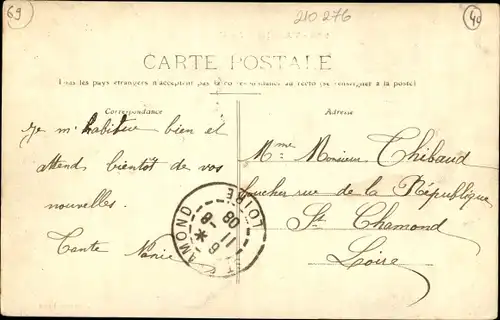 69
210 276
40
CARTE POSTALE
Tous les pays étrangers n'acceptent pas la correspondance au recto (se renseigner à la poste)
Correspondance
Adresse
Je m'habitue bien et
attend bientôt de vos
nouvelles.
Tante
Mme Monsieur Thibaud
boucher rue de la République
St Chamond
Loire
AMOND
LOIRE
6 *
11 -8
08